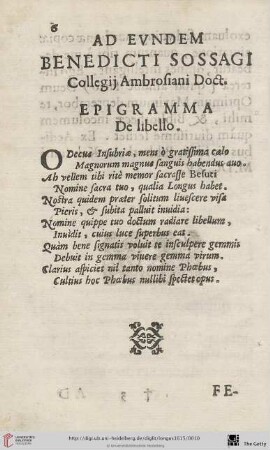 6
AD EVNDEM
BENEDICTI SOSSAGI
Collegij Ambrosiani Doct.
EPIGRAMMA
De libello.
O Decus Insubriæ, meu ò gratissima cælo
Magnorum magnus sanguis habendus auo.
Ah vellem tibi ritè memor sacrasse Besuti
Nomine sacra tuo, qualia Longus habet.
Nostra quidem præter solitum liuescere visa
Pieris, & subita palluit inuidia:
Nomine quippe tuo doctum radiare libellum,
Inuidit, cuius luce superbus eat.
Quàm bene signatis voluit te insculpere gemmis
Debuit in gemma viuere gemma virum.
Clarius aspiciet nil tanto nomine Phœbus,
Cultius hoc Phœbus nullibi spectet opus.
FE-
http://digi.ub.uni-heidelberg.de/diglit/longus1615/0010
The Getty